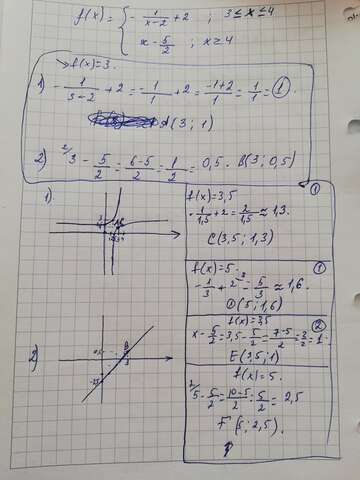 f(x) = { - 1/(x-2) + 2 ; 3 ≤ x ≤ 4
x - 5/2 ; x ≥ 4
f(x)=3.
1) - 1/(3-2) + 2 = - 1/1 + 2 = (-1+2)/1 = 1/1 = 1.
A(3; 1)
2) 3 - 5/2 = (6-5)/2 = 1/2 = 0,5. B(3; 0,5)
1)
f(x)=3,5 1
- 1/1,5 + 2 = 2/1,5 ≈ 1,3.
C(3,5; 1,3)
f(x)=5. 1
- 1/3 + 2 = 5/3 ≈ 1,6.
D(5; 1,6)
f(x)=3,5 2
x - 5/2 = 3,5 - 5/2 = (7-5)/2 = 2/2 = 1.
E(3,5; 1)
2)
f(x)=5.
5 - 5/2 = (10-5)/2 = 5/2 = 2,5
F(5; 2,5).